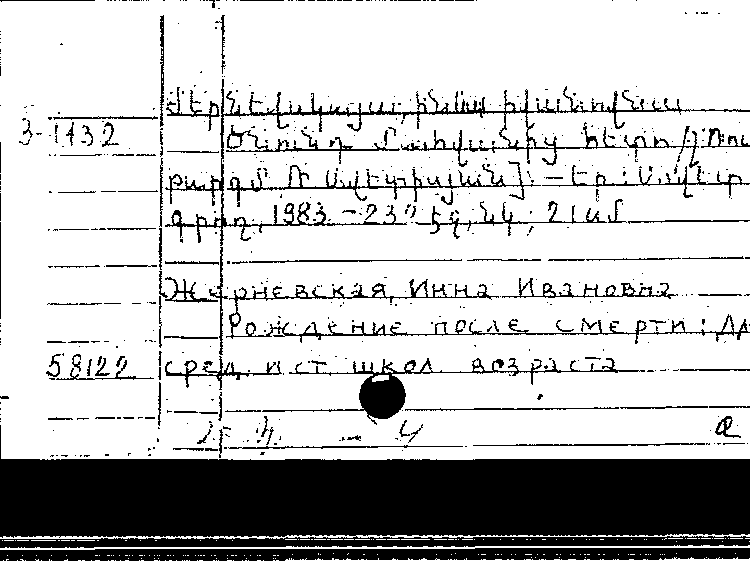 Ժերնևսկայա, Իննա Իվանովնա
3-1432 Ծնունդ մահվանից հետո /Ռուս
թարգմ. Ռ. Ավետիսյան]: – Եր.: Սովետ.
գրող, 1983. – 23 էջ, նկ.; 21 սմ
Жерневская, Инна Ивановна
Рождение после смерти: Дл
58122 сред. и ст. школ. возраста